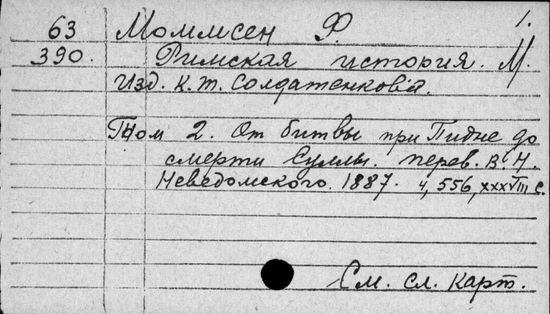 1.
63 Моммсен Ф.
390. Римская история. М.
Изд. К.Т. Солдатенкова.
Том 2. От битвы при Пидне до
смерти Суллы. перев. В.Н.
Неведомского. 1887. 4, 556, XXXVIII с.
См. сл. карт.